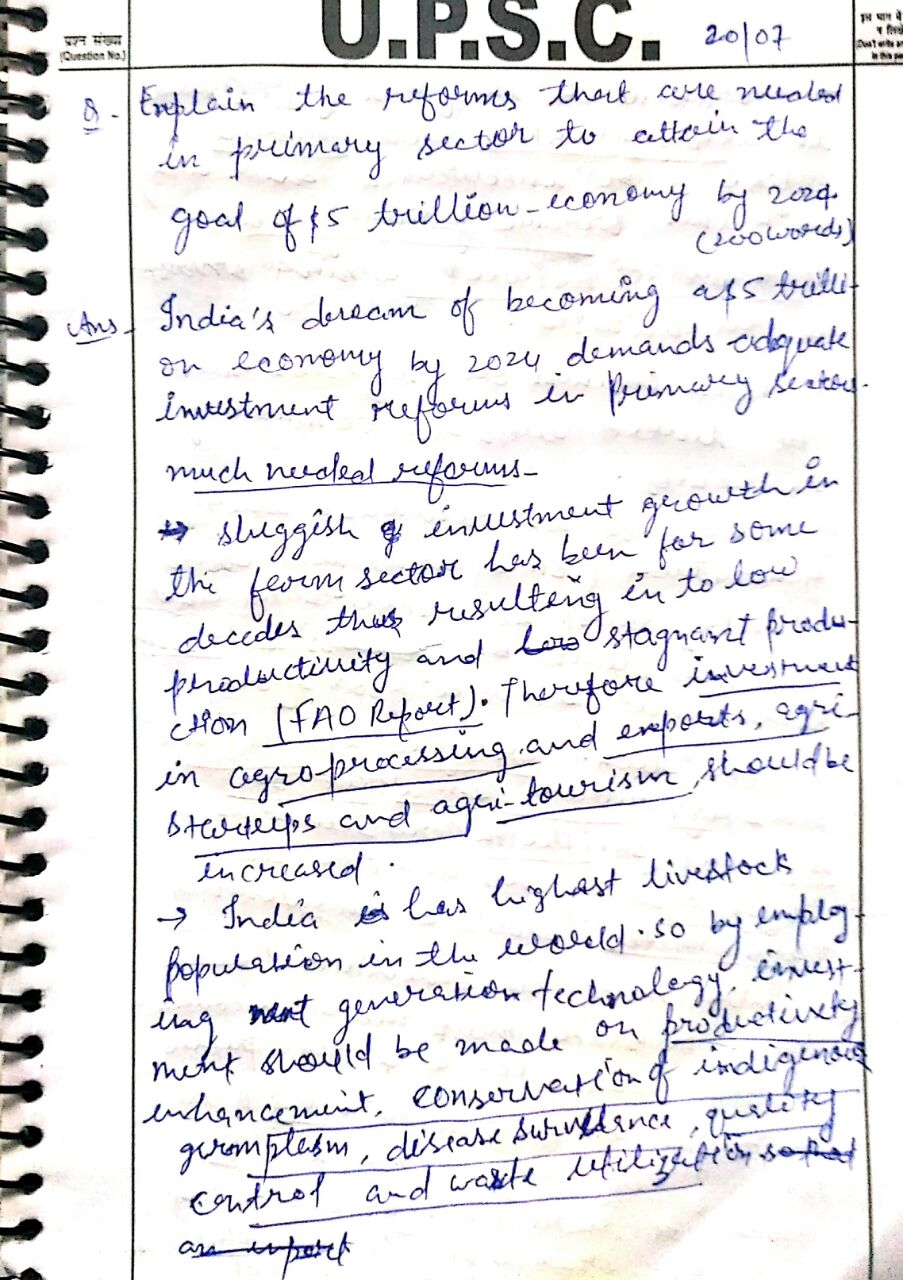 U.P.S.C.
20/07
प्रश्न संख्या
(Question No.)
Q - Explain the reforms that are needed
in primary sector to attain the
goal of $5 trillion economy by 2024.
(200 words)
Ans - India's dream of becoming a $5 trilli-
on economy by 2024 demands adquate
investment reforms in Primary sector.
much needed reforms-
→ sluggish investment growth in
the farm sector has been for some
decades thus resulting in to low
productivity and stagnant produ-
ction (FAO Report). Therefore investment
in agro-processing and exports, agri-
startups and agri-tourism should be
increased.
→ India has highest livestock
population in the world. so by employ-
ing next generation technology, invest-
ment should be made on productivity
enhancement, conservation of indigenous
germplasm, disease surveillance, quality
control and waste utilization so that
an import